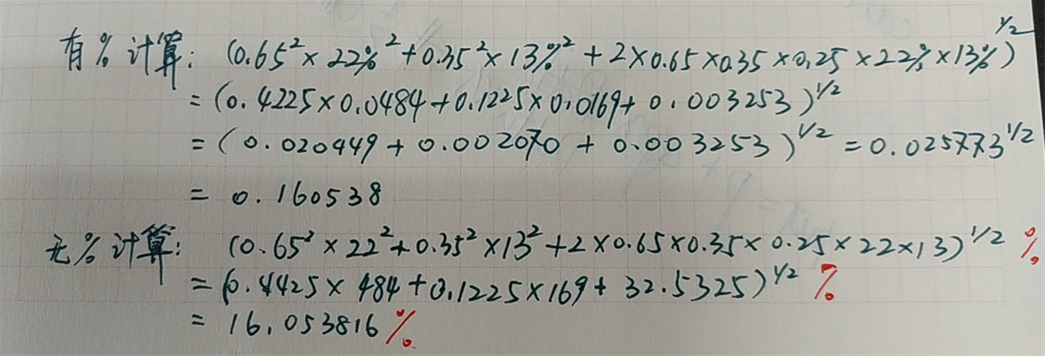 有%计算: (0.65² × 22%² + 0.35² × 13%² + 2×0.65×0.35×0.25×22%×13%)^1/2
= (0.4225×0.0484+0.1225×0.0169+0.003253)^1/2
= (0.020449 + 0.002070 + 0.003253)^1/2 = 0.025773^1/2
= 0.160538
无%计算: (0.65² × 22² + 0.35² × 13² + 2×0.65×0.35×0.25×22×13)^1/2 %
= (0.4425× 484+0.1225×169+ 32.5325)^1/2 %
= 16.053816%